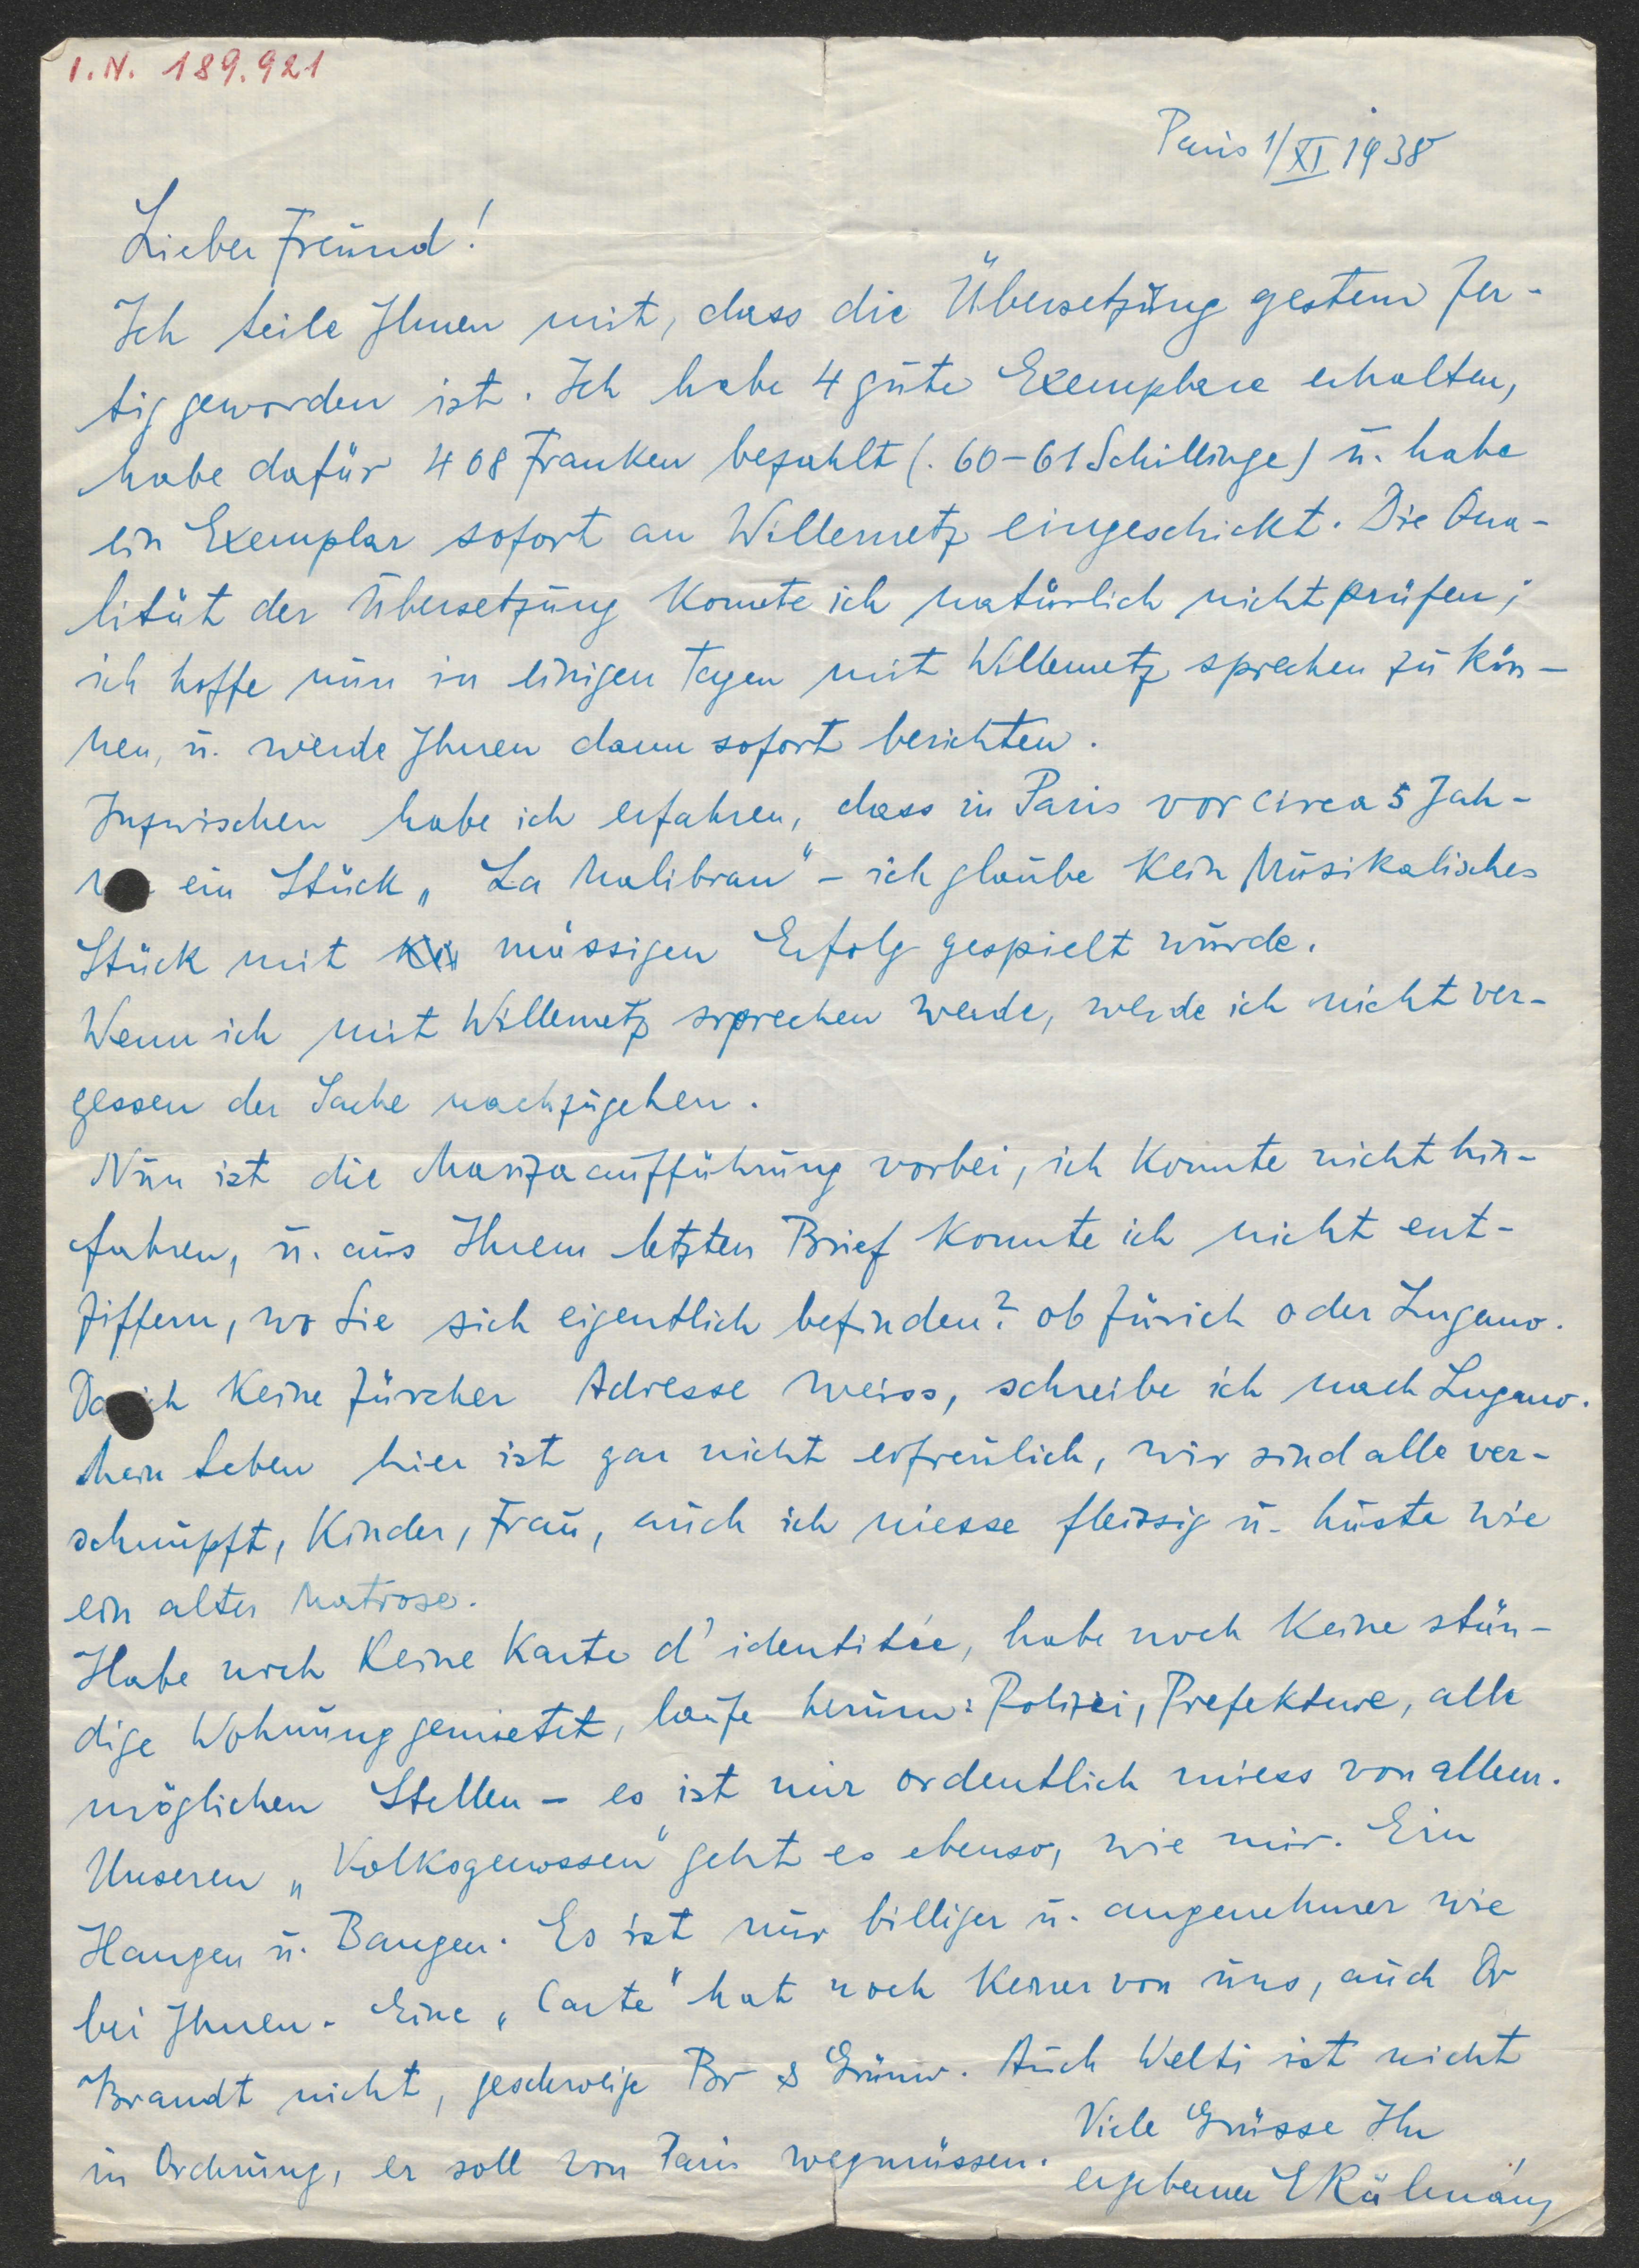 I.N. 189.921
Paris 1/XI 1938
Lieber Freund!
Ich teile Ihnen mit, dass die Übersetzung gestern fer-
tig geworden ist. Ich habe 4 gute Exemplare erhalten,
habe dafür 408 Franken bezahlt (. 60-61 Schillinge) u. habe
ein Exemplar sofort an Willemetz eingeschickt. Die Qua-
lität der Übersetzung konnte ich natürlich nicht prüfen;
ich hoffe nun in einigen Tagen mit Willemetz sprechen zu kön-
nen, u. werde Ihnen dann sofort berichten.
Inzwischen habe ich erfahren, dass in Paris vor circa 5 Jah-
ein Stück „La Malibran" - ich glaube kein Musikalisches
Stück mit mässigen Erfolg gespielt wurde.
Wenn ich mit Willemetz sprechen werde, werde ich nicht ver-
gessen der Sache nachzugehen.
Nun ist die Marizaaufführung vorbei, ich konnte nicht hin-
fahren, u. aus Ihrem letzten Brief konnte ich nicht ent-
ziffern, wo Sie sich eigentlich befinden? ob Zürich oder Lugano.
Da ich keine Zürcher Adresse weiss, schreibe ich nach Lugano.
Mein Leben hier ist gar nicht erfreulich, wir sind alle ver-
schnupft, Kinder, Frau, auch ich niesse fleissig u. huste wie
ein alter Matrose.
Habe noch keine Karte d'identitée, habe noch keine stän-
dige Wohnung gemietet, laufe herum: Polizei, Prefekture, alle
möglichen Stellen - es ist mir ordentlich miess von allem.
Unseren „Volksgenossen" geht es ebenso, wie mir. Ein
Hangen u. Bangen. Es ist nur billiger u. angenehmer wie
bei Ihnen. Eine „Carte" hat noch keiner von uns, auch Dr
Brandt nicht, geschweige Br & Grünw. Auch Welti ist nicht
in Ordnung, er soll von Paris wegmüssen.
Viele Grüsse Ihr
ergebener EKálmán